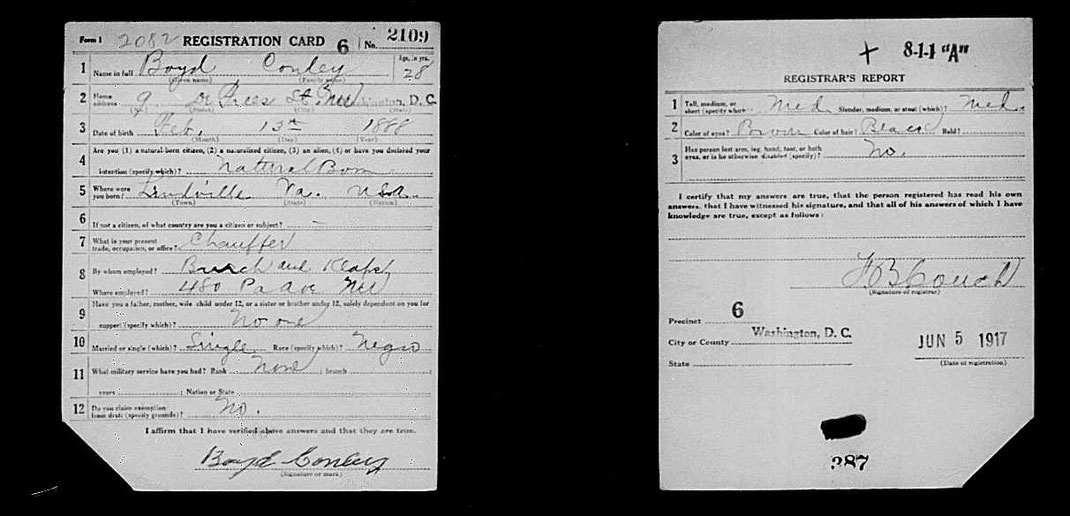 Form 1 2082 REGISTRATION CARD 6 No. 2109
1 Name in full Boyd Conley Age, in yrs. 28
(Given name) (Family name)
2 Home address 9 St. NW Washington, D. C.
(No.) (Street) (State)
3 Date of birth Feb. 13th 1888
(Month) (Day) (Year)
4 Are you (1) a natural-born citizen, (2) a naturalized citizen, (3) an alien, (4) or have you declared your
intention (specify which)? Natural Born
5 Where were you born? Va. USA.
(Town) (State) (Nation)
6 If not a citizen, of what country are you a citizen or subject?
7 What is your present trade, occupation, or office? Chauffer
8 By whom employed? and
Where employed? 480 Pa Ave NW
9 Have you a father, mother, wife, child under 12, or a sister or brother under 12, solely dependent on you for
support (specify which)? No one
10 Married or single (which)? Single Race (specify which)? Negro
11 What military service have you had? Rank None ; branch ;
years ; Nation or State
12 Do you claim exemption from draft (specify grounds)? No.
I affirm that I have verified above answers and that they are true.
Boyd Conley
(Signature or mark)
+ 8-1-1 "A"
REGISTRAR'S REPORT
1 Tall, medium, or short (specify which)? Med. Slender, medium, or stout (which)? Med.
2 Color of eyes? Brown Color of hair? Black Bald?
3 Has person lost arm, leg, hand, foot, or both
eyes, or is he otherwise disabled (specify)? No.
I certify that my answers are true, that the person registered has read his own
answers, that I have witnessed his signature, and that all of his answers of which I have
knowledge are true, except as follows:
B Couch
(Signature of registrar)
Precinct 6
City or County Washington, D. C.
State
JUN 5 1917
(Date of registration)
387